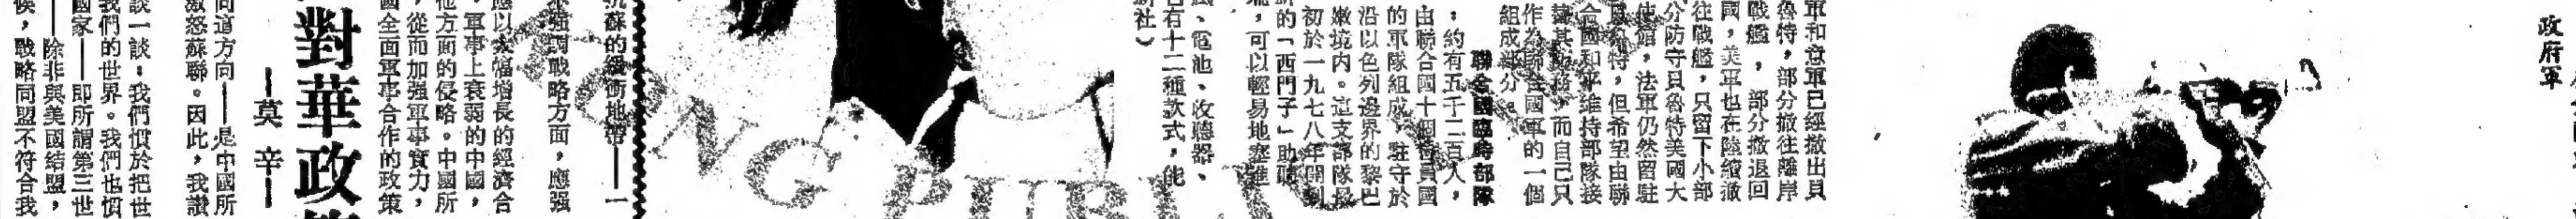 政府軍
軍和意軍已經撤出貝
魯特，部分撤往離岸
戰艦，部分撤退回
國，美軍也在陸續撤
往戰艦，只留下小部
分防守貝魯特美國大
使館，法軍仍然留駐
貝魯特，但希望由聯
合國和平維持部隊接
替其防務，而自己只
作為聯合國軍的一個
組成部分。
聯合國臨時部隊
，約有五千二百人，
由聯合國十個會員國
的軍隊組成，駐守於
沿以色列邊界的黎巴
嫩境內。這支部隊最
初於一九七八年開到
的「西門子」助聽
，可以輕易地塞進
、電池、收聽器、
有十二種款式，能
社）
抗蘇的緩衝地帶——一
強調戰略方面，應強
應以大幅增長的經濟合
，軍事上衰弱的中國，
他方面的侵略。中國所
，從而加強軍事實力，
國全面軍事合作的政策
對華政策
—莫辛—
同這方向——是中國所
激怒蘇聯。因此，我讚
談一談：我們慣於把世
我們的世界。我們也慣
國家——即所謂第三世
——除非與美國結盟，
，戰略同盟不符合我
ONG PUBLI